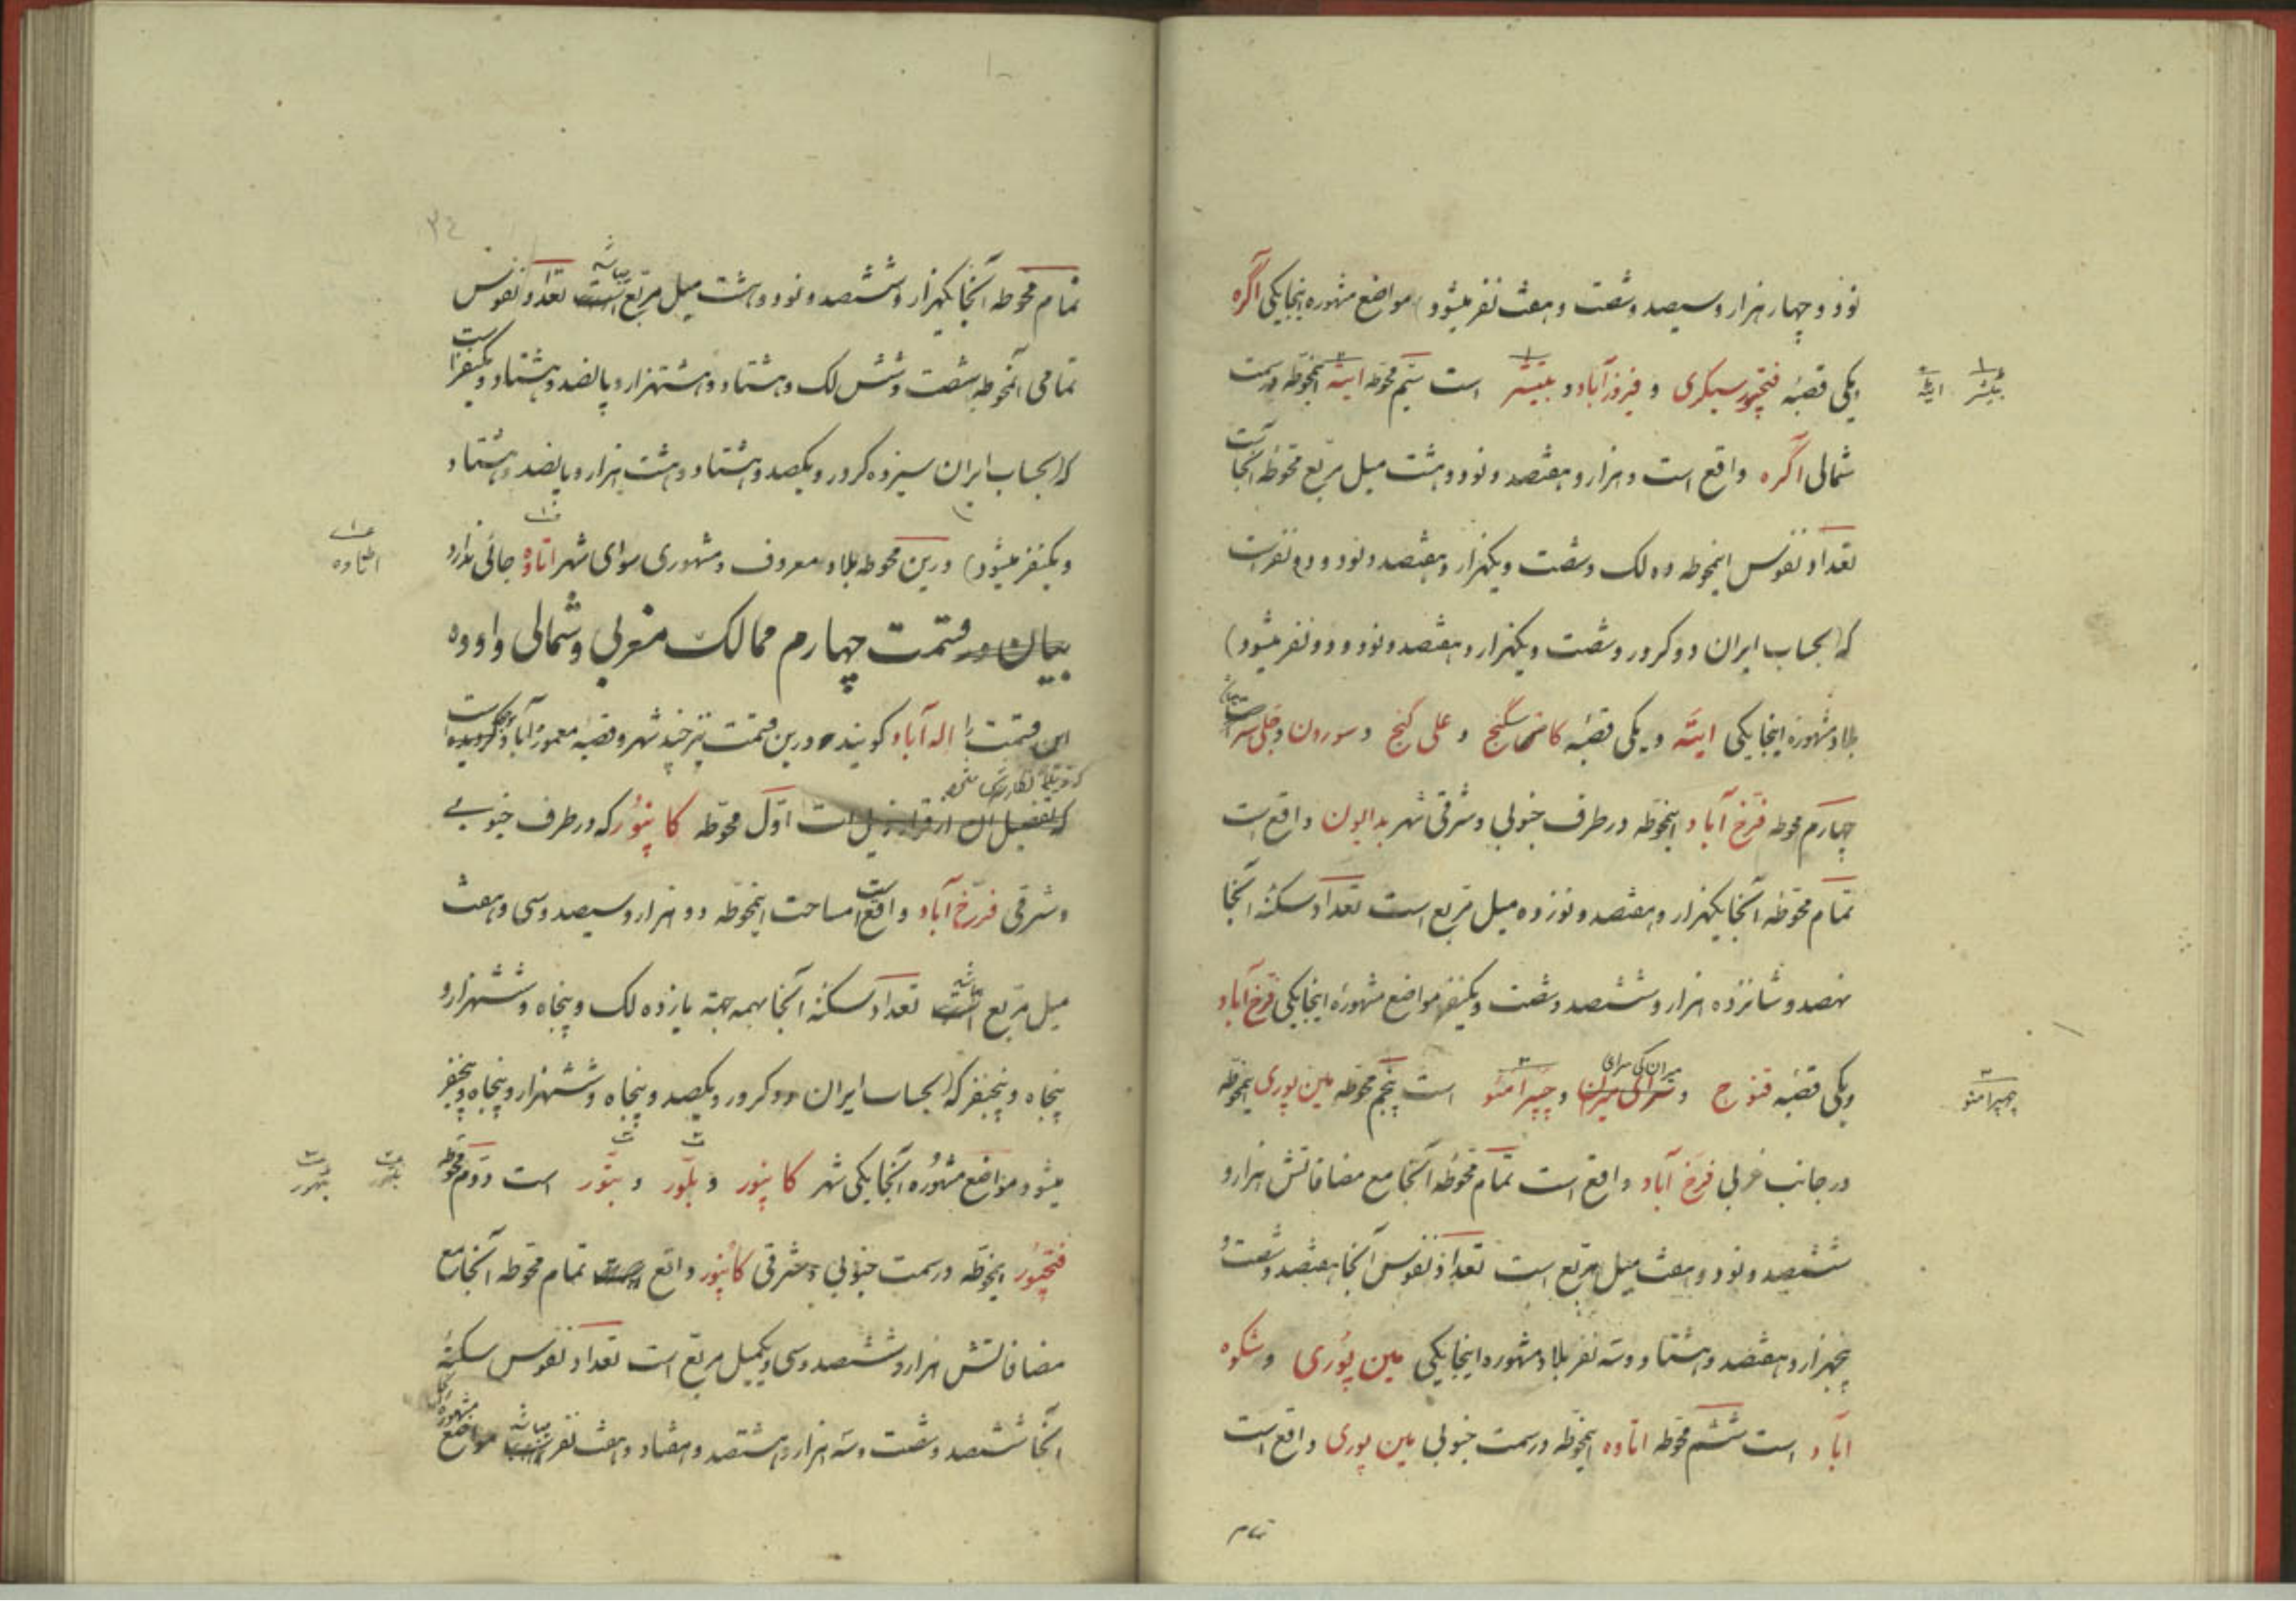 نود و چهار هزار و سیصد و شصت و هفت نفر میشود) مواضع مشهوره اینجا یکی اگره
و یکی قصبهٔ فتحپور سیکری و فیروزآباد و بتیشر است سیّم محوطه ایته اینمحوطه در سمت
بٹیشر ایٹه
شمالی اگره واقع است و هزار و هفتصد و نود و هشت میل مربع محوطه آنجا است
تعداد نفوس اینمحوطه ده لک و شصت و یکهزار و هفتصد و نود و دو نفر است
که (بحساب ایران دو کرور و شصت و یکهزار و هفتصد و نود و دو نفر میشود)
بلاد مشهوره اینجا یکی ایته و یکی قصبه کاضگنج و علی گنج و سورون و جلی سر
چهارم محوطه فرّخ آباد اینمحوطه در طرف جنوبی و شرقی شهر بدایون واقع است
تمام محوطه آنجا یکهزار و هفتصد و نوزده میل مربع است تعداد سکنهٔ آنجا
نهصد و شانزده هزار و ششصد و شصت و یکنفر مواضع مشهورهٔ اینجا یکی فرخ آباد
و یکی قصبه قنوج و سرای میران میران کی سرای و چپرامئو است پنجم محوطه مین پوری اینمحوطه
چهپرامئو
در جانب غربی فرّخ آباد واقع است تمام محوطه آنجا مع مضافاتش هزار و
ششصد و نود و هفت میل مربع است تعداد نفوس آنجا هفتصد و شصت و
پنجهزار و هفتصد و هشتاد و سه نفر بلاد مشهوره اینجا یکی مین پوری و شکوه
آباد است ششم محوطه اتاوه اینمحوطه در سمت جنوبی مین پوری واقع است
تمام
٣٤
تمام محوطه آنجا یکهزار و ششصد و نود و هشت میل مربع است میباشد تعداد نفوس
تمامی اینمحوطه شصت و شش لک و هشتاد و هشتهزار و پانصد و هشتاد و یکنفر است
که (بحساب ایران سیزده کرور و یکصد و هشتاد و هشت هزار و پانصد و هشتاد
و یکنفر میشود) درین محوطه بلاد معروف و مشهوری سوای شهر اتاوه جائی ندارد
اطاوه
بیان در قسمت چهارم ممالک مغربی و شمالی و اوده
این قسمت را اله آباد گویند و درین قسمت نیز چند شهر و قصبه معموره آباد
که تفصیل آن از قرار ذیل است اوّل محوطه کانپور که در طرف جنوبی
و شرقی فرّخ آباد واقع است مساحت اینمحوطه دو هزار و سیصد و سی و هفت
میل مربع است میباشد تعداد سکنهٔ آنجا بهمه جهة یازده لک و پنجاه و ششهزار و
پنجاه و پنجنفر که (بحساب ایران دو کرور و یکصد و پنجاه و ششهزار و پنجاه و پنجنفر
میشود مواضع مشهوره آنجا یکی شهر کانپور و بلّور و بتّور است دوّم محوطه
بلهور بٹهور
فتحپور اینمحوطه در سمت جنوبی و شرقی کانپور واقع است تمام محوطه آنجا مع
مضافاتش هزار و ششصد و سی و یکمیل مربع است تعداد نفوس سکنهٔ
آنجا ششصد و شصت و سه هزار و هشتصد و هفتاد و هفت نفر میباشد مواضع مشهوره